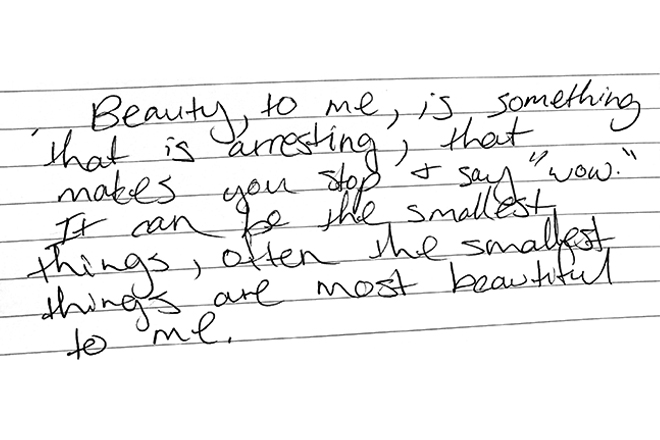 Beauty, to me, is something
that is arresting, that
makes you stop & say "wow."
It can be the smallest
things, often the smallest
things are most beautiful
to me.